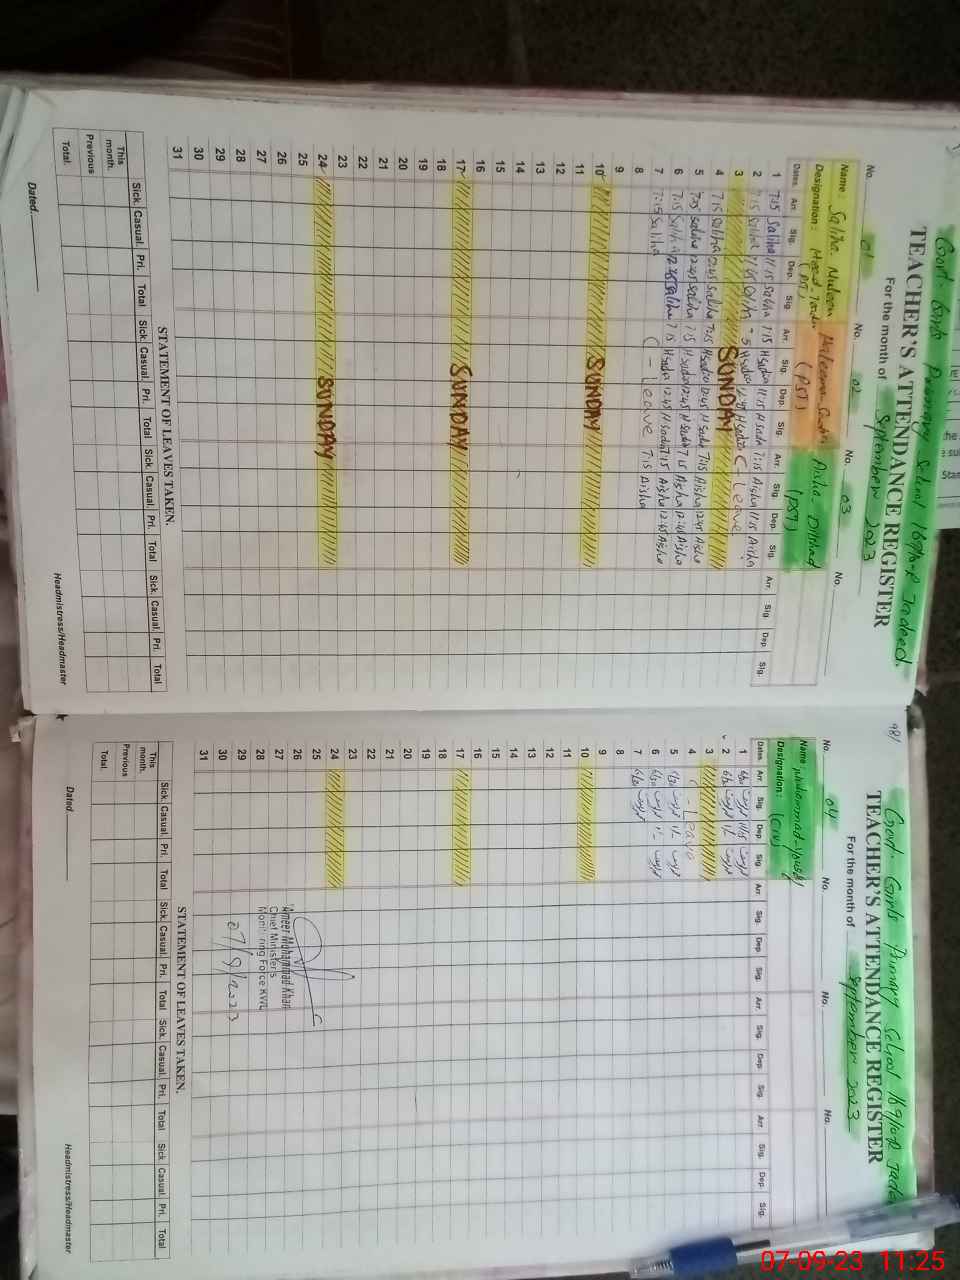 Govt. Girls Primary School 169/10-R Jadeed.
TEACHER'S ATTENDANCE REGISTER
For the month of September 2023
No. 01 No. 02 No. 03 No.
Name: Saliha Haleema Sadia Aisha Dilshad
Designation: (PST) (PST) (PST)
Dates. Arr. Sig. Dep. Sig. Arr. Sig. Dep. Sig. Arr. Sig. Dep. Sig. Arr. Sig. Dep. Sig.
1 7:15 Saliha 11:15 Saliha 7:15 H Sadia 11:15 H Sadia 7:15 Aisha 11:15 Aisha
2 7:15 Saliha H Sadia H Sadia ( - Leave
3 SUNDAY
4 7:15 Saliha 12:45 Saliha 7:15 H Sadia 12:45 H Sadia 7:15 Aisha 12:45 Aisha
5 7:15 Saliha 12:45 Saliha 7:15 H Sadia 12:45 H Sadia 7:15 Aisha 12:45 Aisha
6 7:15 Saliha 12:45 Saliha 7:15 H Sadia 12:45 H Sadia 7:15 Aisha 12:45 Aisha
7 7:15 Saliha ( - Leave 7:15 Aisha
8
9
10 SUNDAY
11
12
13
14
15
16
17 SUNDAY
18
19
20
21
22
23
24 SUNDAY
25
26
27
28
29
30
31
STATEMENT OF LEAVES TAKEN.
Sick. Casual. Pri. Total Sick. Casual. Pri. Total Sick. Casual. Pri. Total Sick. Casual. Pri. Total
This month.
Previous
Total.
Dated. Headmistress/Headmaster
981
Govt. Girls Primary School 169/10-R Jadeed
TEACHER'S ATTENDANCE REGISTER
For the month of September 2023
No. 04 No. No. No.
Name: Muhammad Yousaf
Designation: (C-IV)
Dates. Arr. Sig. Dep. Sig. Arr. Sig. Dep. Sig. Arr. Sig. Dep. Sig. Arr. Sig. Dep. Sig.
1
2
3
4 ( - Leave
5
6
7
8
9
10
11
12
13
14
15
16
17
18
19
20
21
22
23
24
25
26
27
28
29
30
31
Ameer Muhammad Khan
Chief Minister's
Monitoring Force KWL
07/9/2023
STATEMENT OF LEAVES TAKEN.
Sick. Casual. Pri. Total Sick. Casual. Pri. Total Sick. Casual. Pri. Total Sick. Casual. Pri. Total
This month.
Previous
Total.
Dated Headmistress/Headmaster
07-09-23 11:25